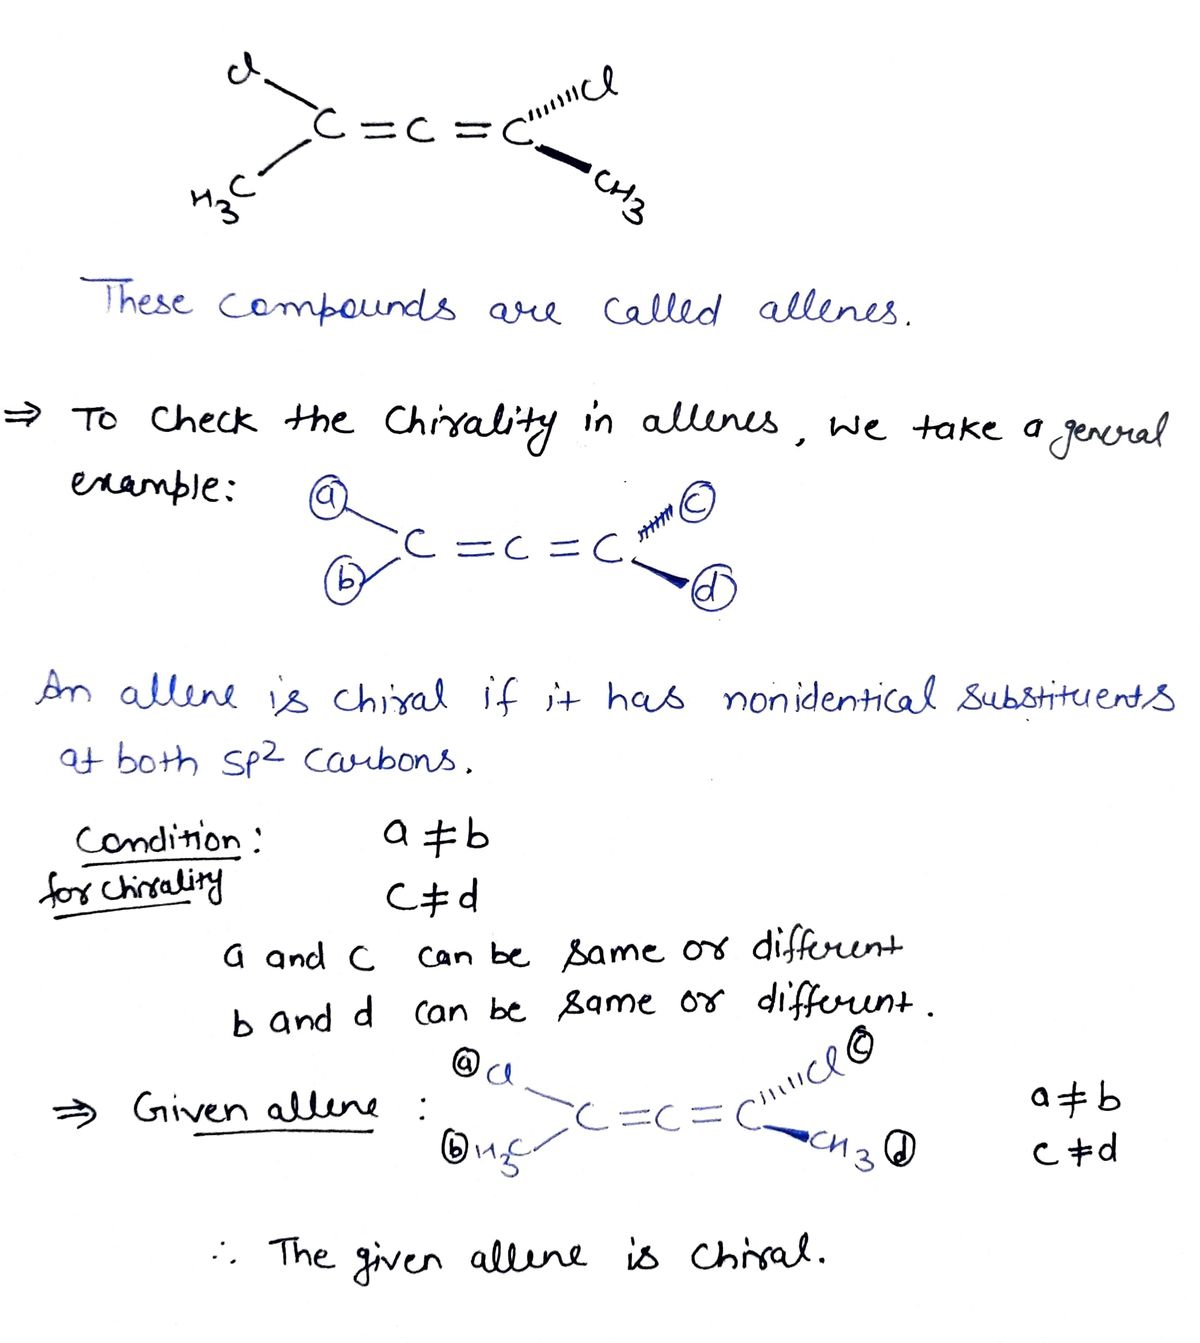 Cl Cl
C = C = C
H3C CH3
These compounds are called allenes.
⇒ To check the chirality in allenes, we take a general
example:
a c
C = C = C
b d
An allene is chiral if it has nonidentical substituents
at both sp2 carbons.
Condition: a ≠ b
for chirality c ≠ d
a and c can be same or different
b and d can be same or different.
a Cl Cl c
⇒ Given allene : C = C = C a ≠ b
b H3C CH3 d c ≠ d
∴ The given allene is chiral.